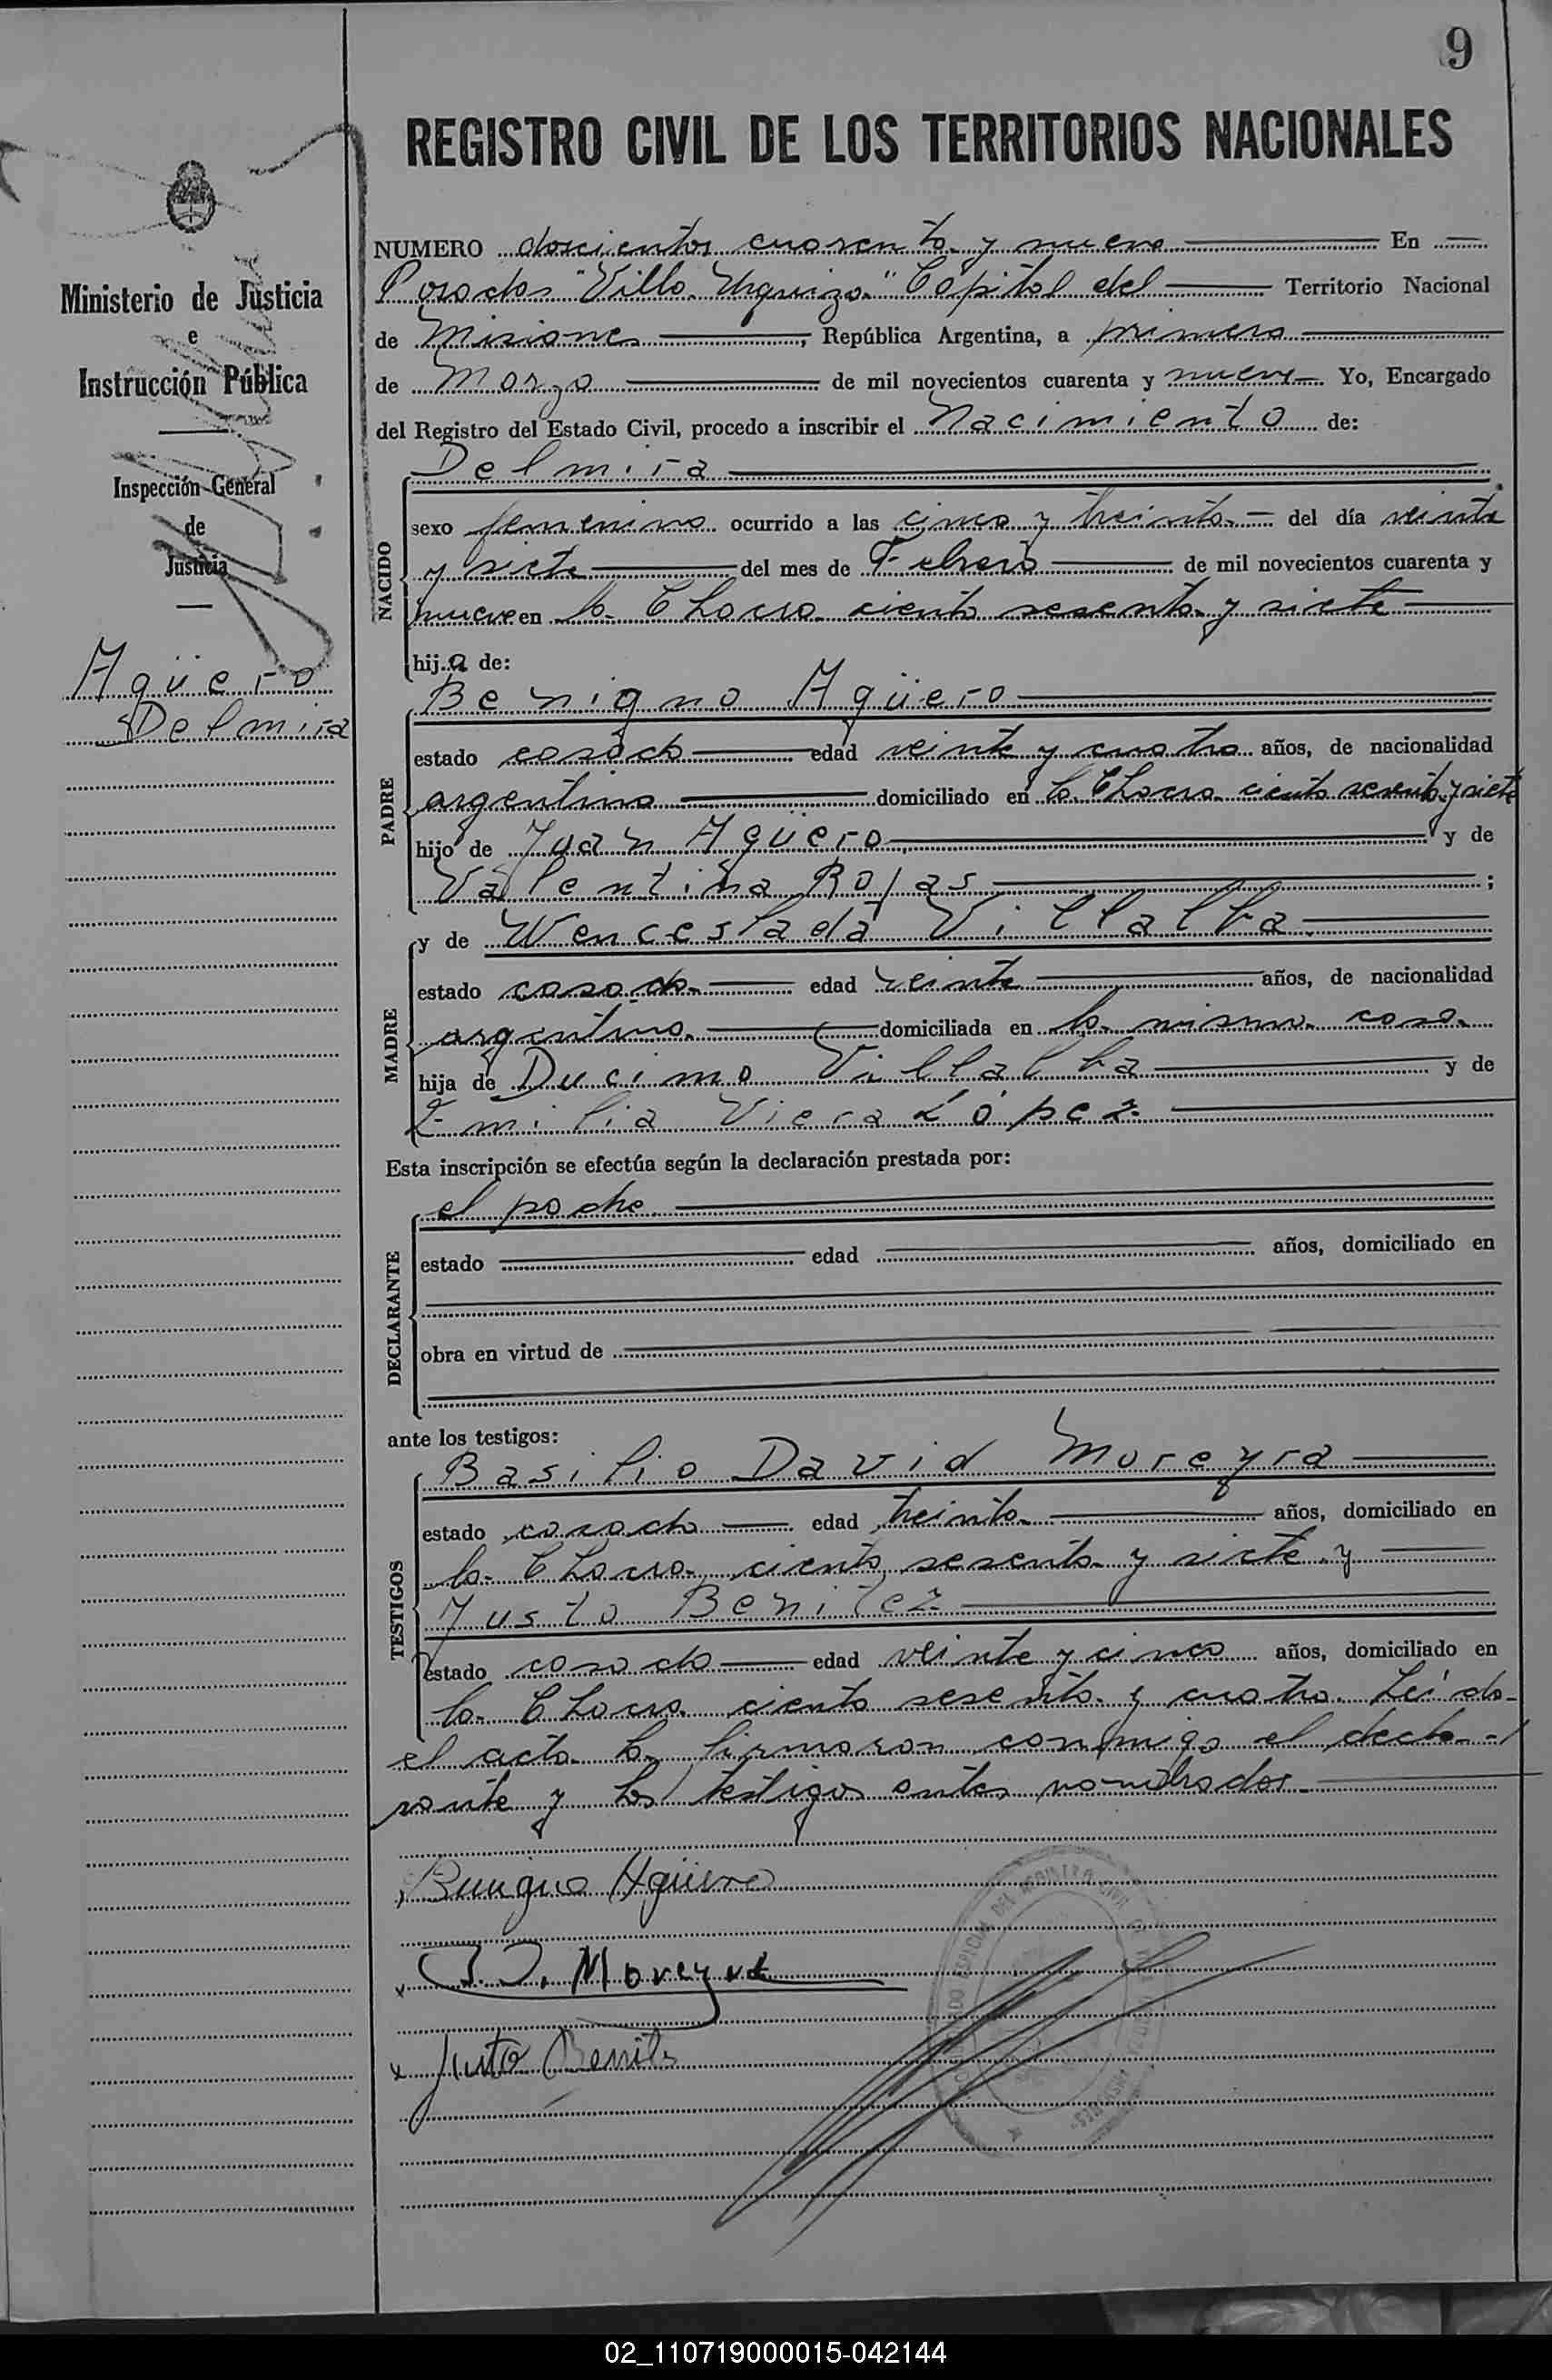 9
REGISTRO CIVIL DE LOS TERRITORIOS NACIONALES
Ministerio de Justicia
e
Instrucción Pública
Inspección General
de
Justicia
Agüero
Delmira
NUMERO doscientos cuarenta y nueve En
Posadas "Villa Urquiza" Capital del Territorio Nacional
de Misiones, República Argentina, a primero
de Marzo de mil novecientos cuarenta y nueve Yo, Encargado
del Registro del Estado Civil, procedo a inscribir el Nacimiento de:
Delmira
NACIDO
sexo femenino ocurrido a las cinco y treinta del día veinte
y siete del mes de Febrero de mil novecientos cuarenta y
nueve en la Chacra ciento sesenta y siete
hija de:
Benigno Agüero
PADRE
estado casado edad veinte y cuatro años, de nacionalidad
argentina domiciliado en la Chacra ciento sesenta y siete
hijo de Juan Agüero y de
Valentina Rojas;
MADRE
y de Wenceslada Villalba
estado casada edad veinte años, de nacionalidad
argentina domiciliada en la misma casa
hija de Ducimo Villalba y de
Emilia Viera López
Esta inscripción se efectúa según la declaración prestada por:
el padre
DECLARANTE
estado edad años, domiciliado en
obra en virtud de
ante los testigos:
Basilio David Moreyra
TESTIGOS
estado casado edad treinta años, domiciliado en
la Chacra ciento sesenta y siete y
Justo Benitez
estado casado edad veinte y cinco años, domiciliado en
la Chacra ciento sesenta y cuatro. Leída
el acta la firmaron conmigo el decla-
rante y los testigos antes nombrados
Benigno Agüero
B. D. Moreyra
Justo Benitez
02_110719000015-042144